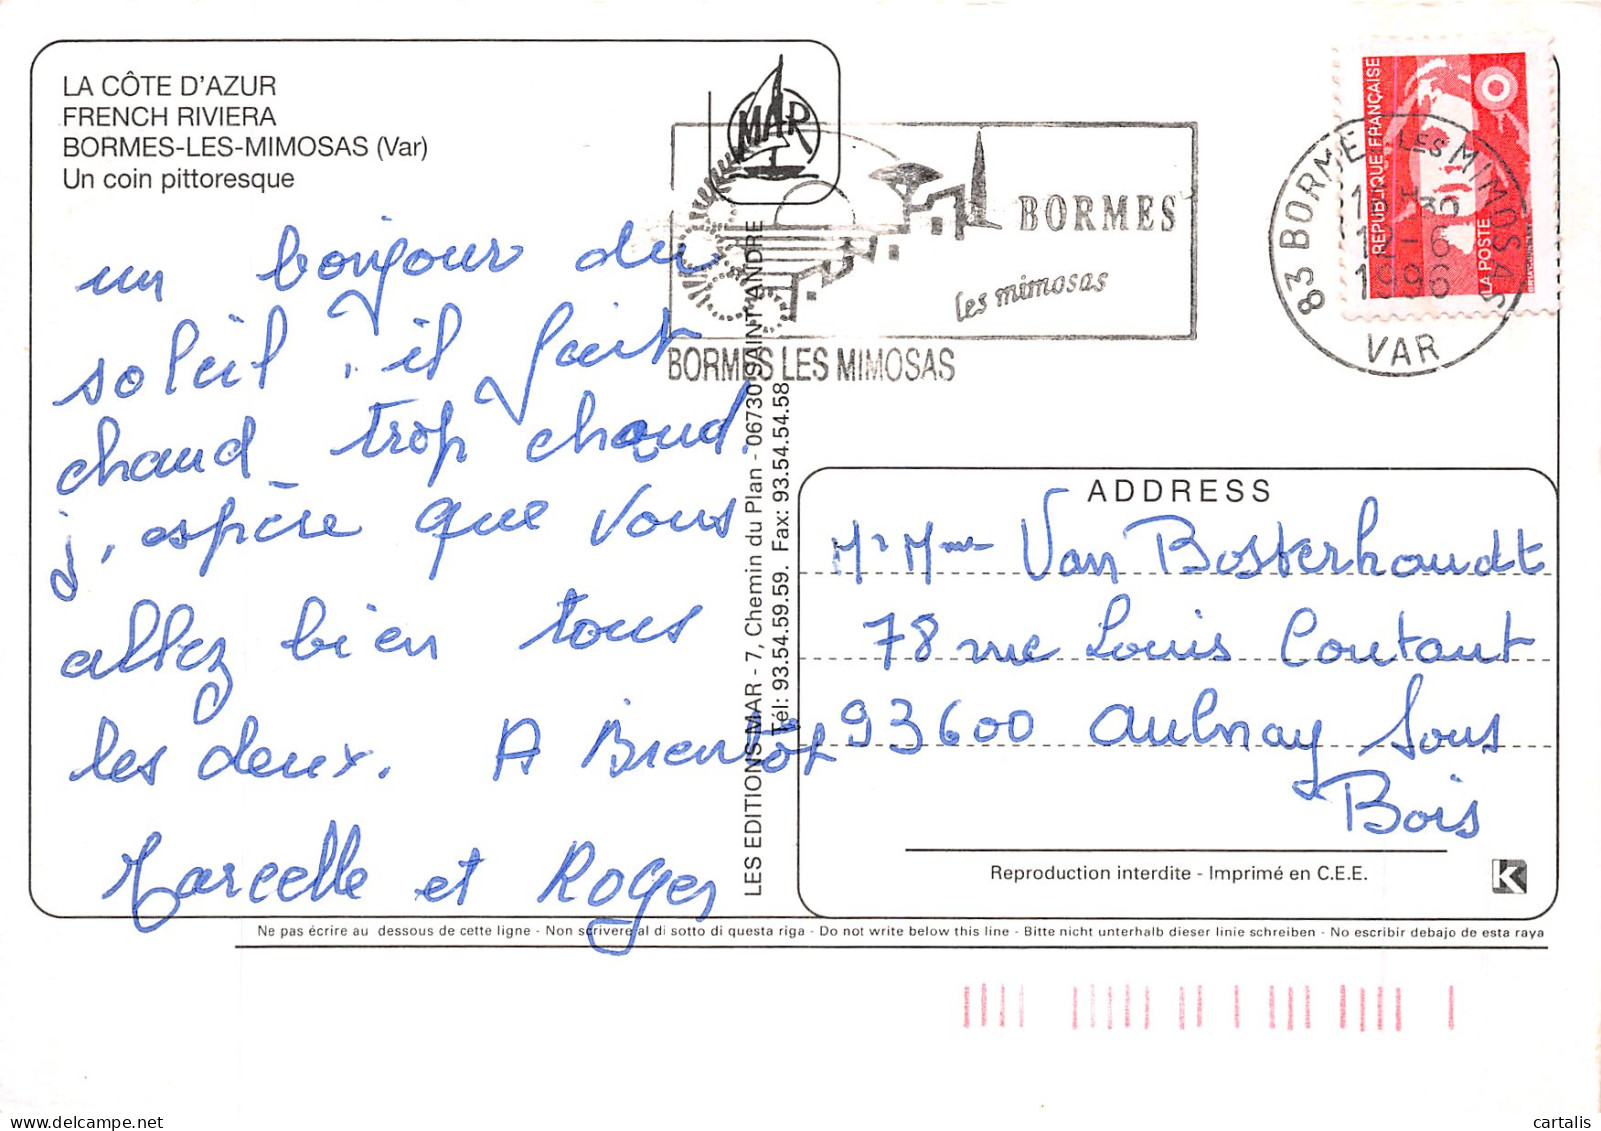 LA CÔTE D'AZUR
FRENCH RIVIERA
BORMES-LES-MIMOSAS (Var)
Un coin pittoresque
MAR
BORMES
les mimosas
BORMES LES MIMOSAS
83 BORMES LES MIMOSAS
12-6
1996
VAR
REPUBLIQUE FRANÇAISE
LA POSTE
un bonjour du
soleil. il fait
chaud trop chaud.
j'espère que vous
allez bien tous
les deux. A Bientôt
Marcelle et Roger
LES EDITIONS MAR - 7, Chemin du Plan - 06730 SAINT ANDRE
Tél: 93.54.59.59. Fax: 93.54.54.58
ADDRESS
Mr Mme Van Bosterhoudt
78 rue Louis Coutant
93600 Aulnay Sous
Bois
Reproduction interdite - Imprimé en C.E.E.
K
Ne pas écrire au dessous de cette ligne - Non scrivere al di sotto di questa riga - Do not write below this line - Bitte nicht unterhalb dieser linie schreiben - No escribir debajo de esta raya
cartalis